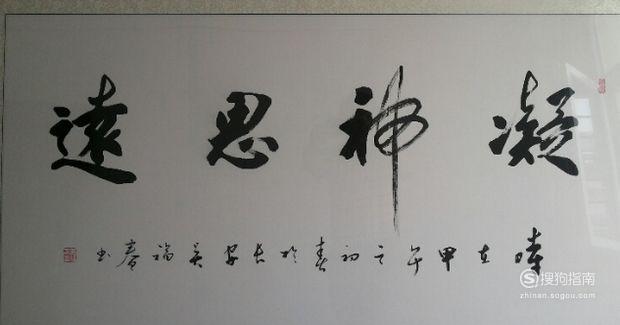 凝神思遠
時在甲午之初春於長安吳福春书
搜狗指南
zhinan.sogou.com